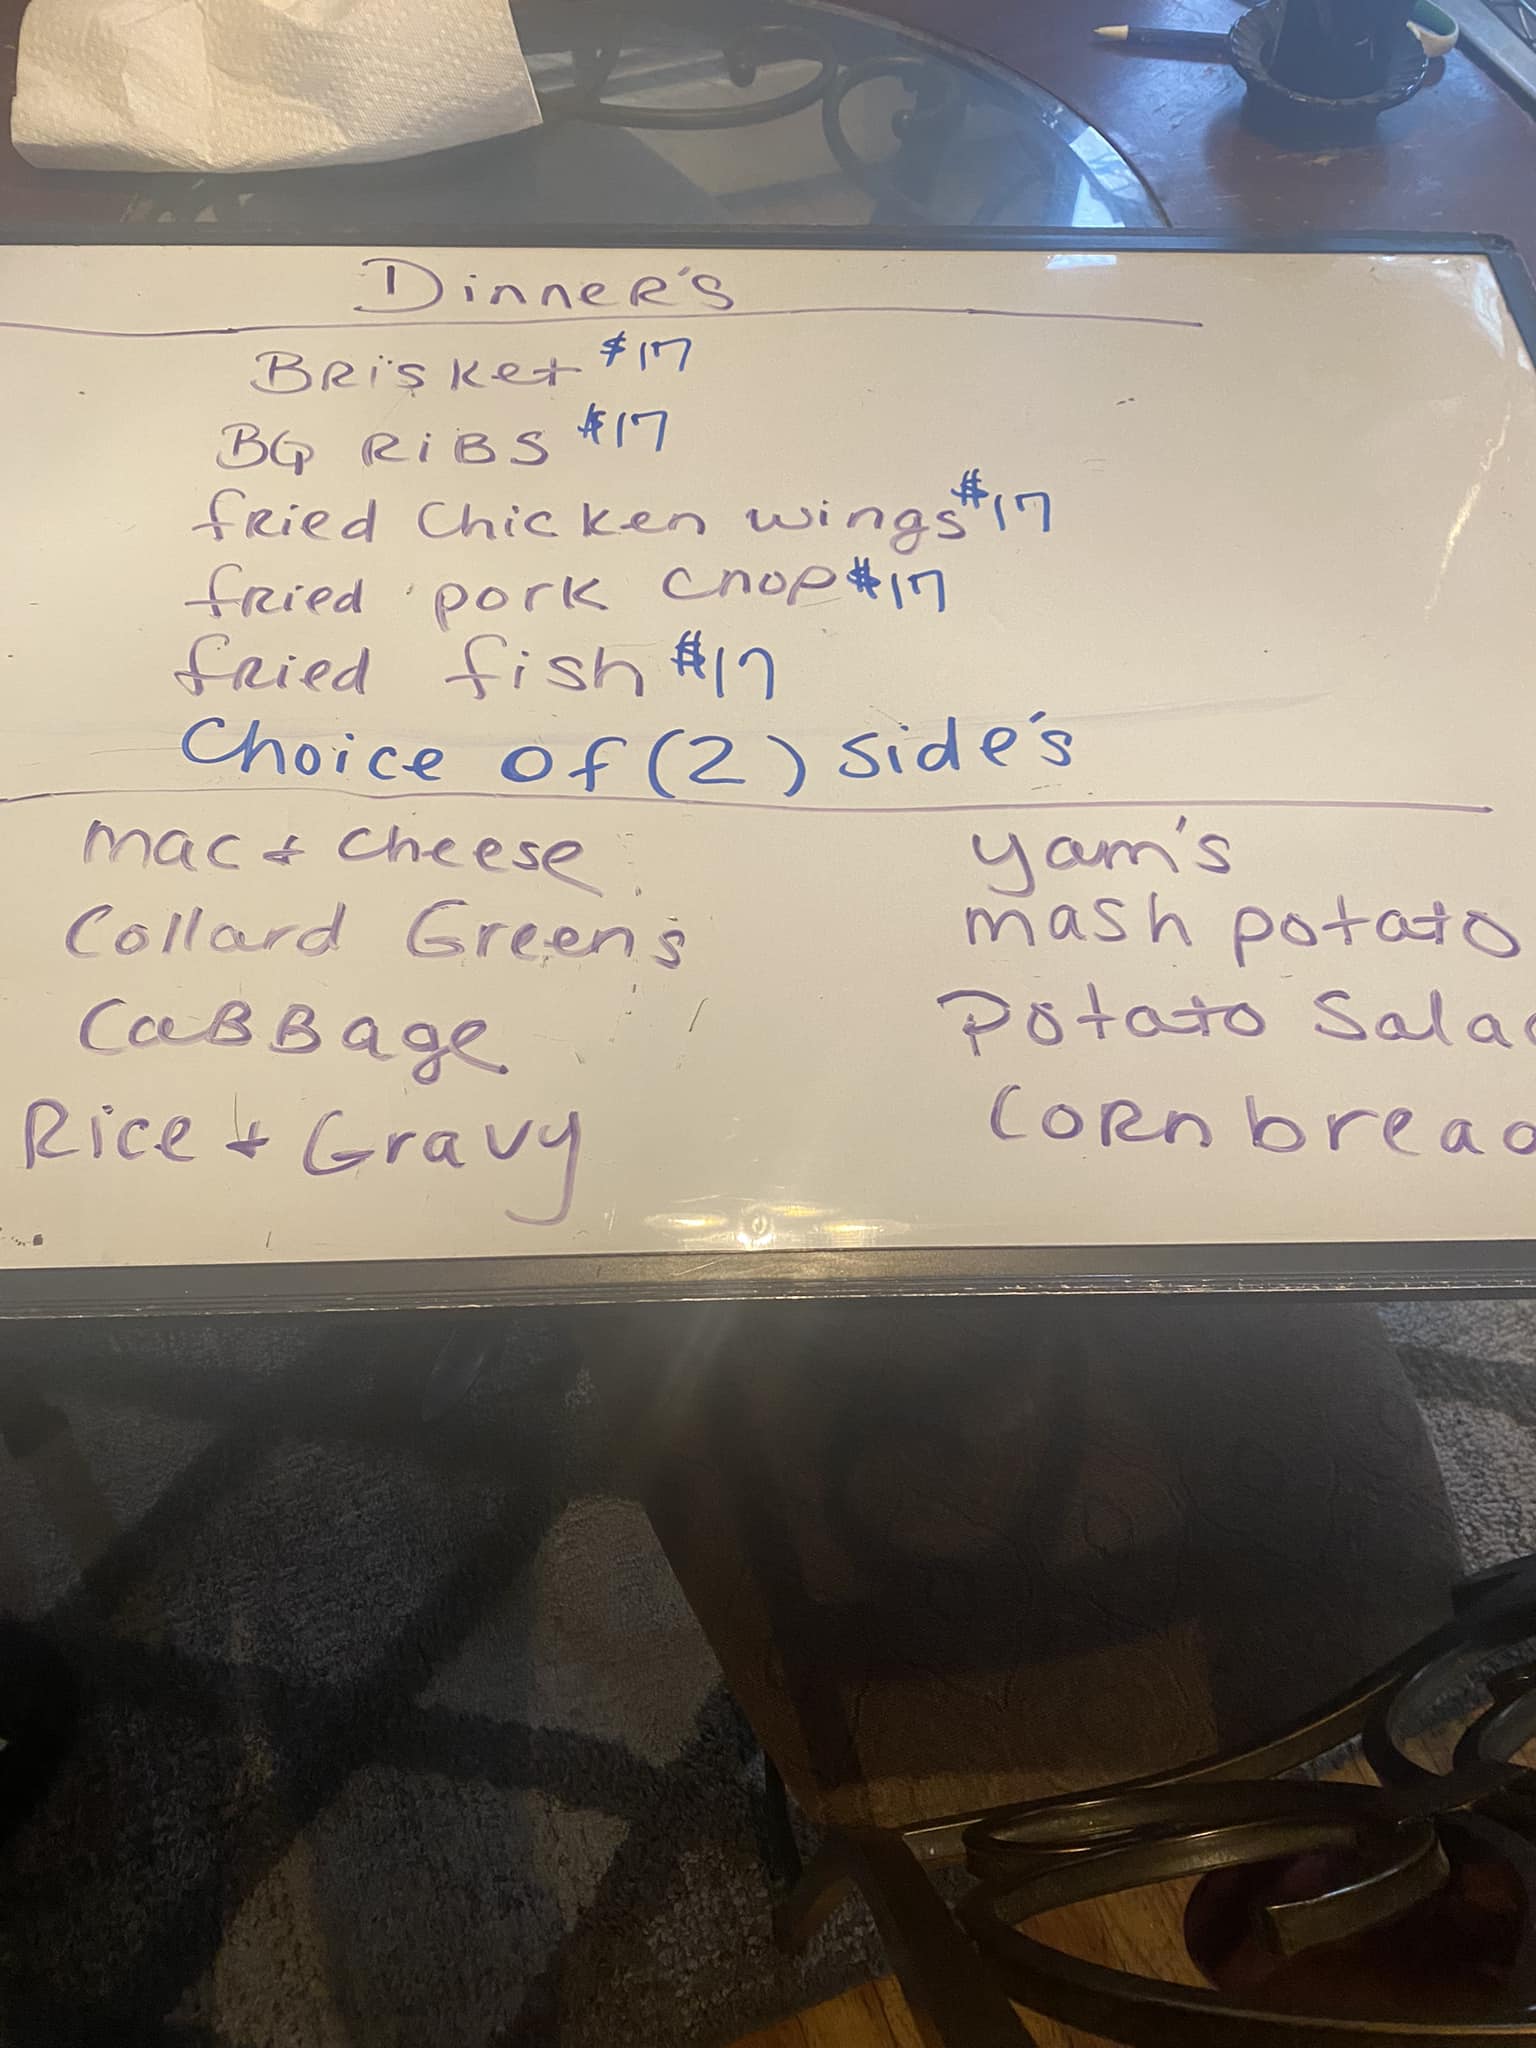 Dinner's
Brisket $17
BQ Ribs $17
fried Chicken wings $17
fried pork chop $17
fried fish $17
Choice of (2) side's
mac & cheese
Collard Greens
Cabbage
Rice & Gravy
yam's
mash potato
Potato Sala
Cornbread